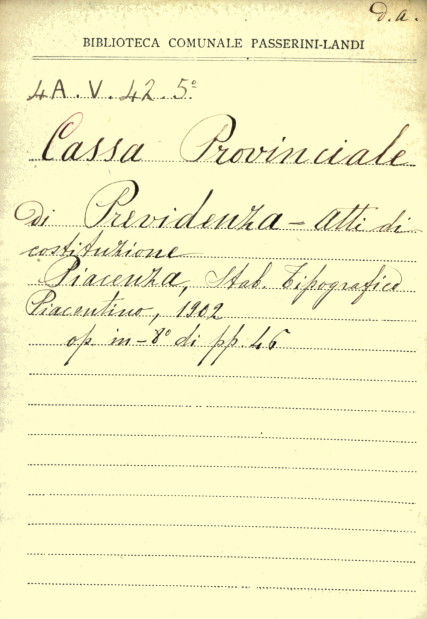 d.a.
BIBLIOTECA COMUNALE PASSERINI-LANDI
4A.V.42.5º
Cassa Provinciale
di Previdenza - Atti di
costituzione
Piacenza, Stab. Tipografico
Piacentino, 1902
op. in-8º di pp. 46